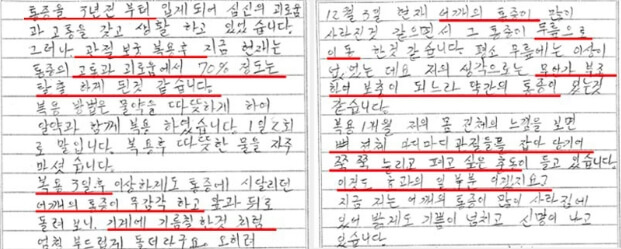 통증을 3년전 부터 입게되어 심신의 괴로움
과 고통을 갖고 생활 하고 있었습니다.
그러나 관절보궁 복용후 지금 현재는
통증의 고통과 괴로움에서 70% 정도는
탈출 하게 된것 같습니다.
복용 방법은 물약을 따뜻하게 하여
알약과 함께 복용 하였습니다. 1일 2회
로 말입니다. 복용후 따뜻한 물을 자주
마셨습니다.
복용 3일후 이상하게도 통증에 시달리던
어깨의 통증이 무감각 하고 팔과 뒤로
돌려 보니. 기계에 기름칠한것 처럼
엄청 부드럽게 돌더라구요. 오히려
12월 5일 현재 어깨의 통증이 많이
사라진것 같으면서 그 통증이 무릎으로
이동 한것 같습니다. 평소 무릎에는 이상이
없었는데요 저의 생각으로는 무언가 부족
한데 보충이 되느라 약간의 통증이 있는것
같습니다.
복용 1개월 저의 몸 전체의 느낌을 보면
뼈 전체 마디마디 관절들을 잡아 당기어
쭉쭉 늘리고 펴고 싶은 충동이 들고 있습니다
이것도 효과의 일부분 이겠지요?
지금 저는 어깨의 통증이 많이 사라진게
있어 밝게도 기쁨이 넘치고 신명이 나고
있습니다.